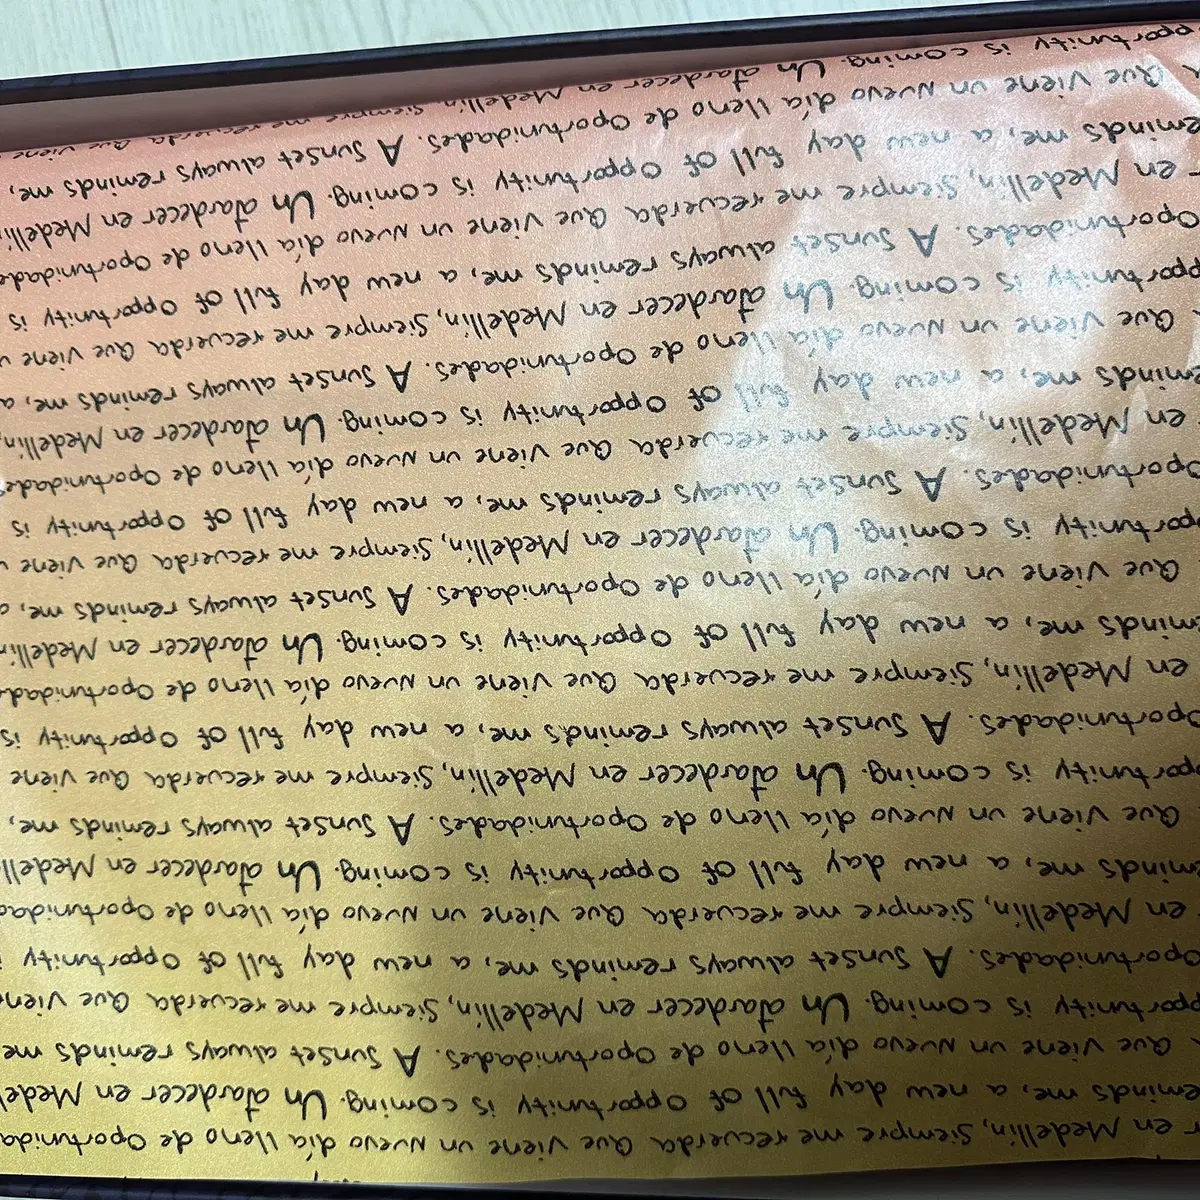 en Medellín, Siempre me recuerda Que viene un nuevo día lleno de
me, a new day full of Opportunity is coming. Un atardecer en
Que viene un nuevo día lleno de Oportunidades. A Sunset always reminds me
is coming. Un atardecer en Medellín, Siempre me recuerda Que
Oportunidades. A Sunset always reminds me, a new day full of Opportunity
en Medellín, Siempre me recuerda Que viene un nuevo día lleno de
me, a new day full of Opportunity is coming. Un atardecer en
Que viene un nuevo día lleno de Oportunidades. A Sunset always reminds me,
is coming. Un atardecer en Medellín, Siempre me recuerda Que viene
Oportunidades. A Sunset always reminds me, a new day full of Opportunity is
en Medellín, Siempre me recuerda Que viene un nuevo día lleno de
me, a new day full of Opportunity is coming. Un atardecer en
Que viene un nuevo día lleno de Oportunidades. A Sunset always reminds me, a
is coming. Un atardecer en Medellín, Siempre me recuerda Que viene
Oportunidades. A Sunset always reminds me, a new day full of Opportunity is
en Medellín, Siempre me recuerda Que viene un nuevo día lleno de Oportunidades
me, a new day full of Opportunity is coming. Un atardecer en Medellín,
Que viene un nuevo día lleno de Oportunidades. A Sunset always reminds me, a
is coming. Un atardecer en Medellín, Siempre me recuerda Que viene
Oportunidades. A Sunset always reminds me, a new day full of Opportunity is
en Medellín, Siempre me recuerda Que viene un nuevo día lleno de
me, a new day full of Opportunity is coming. Un atardecer en
Que viene un nuevo día lleno de Oportunidades. A Sunset always reminds me,
is coming. Un atardecer en Medellín, Siempre me recuerda Que viene